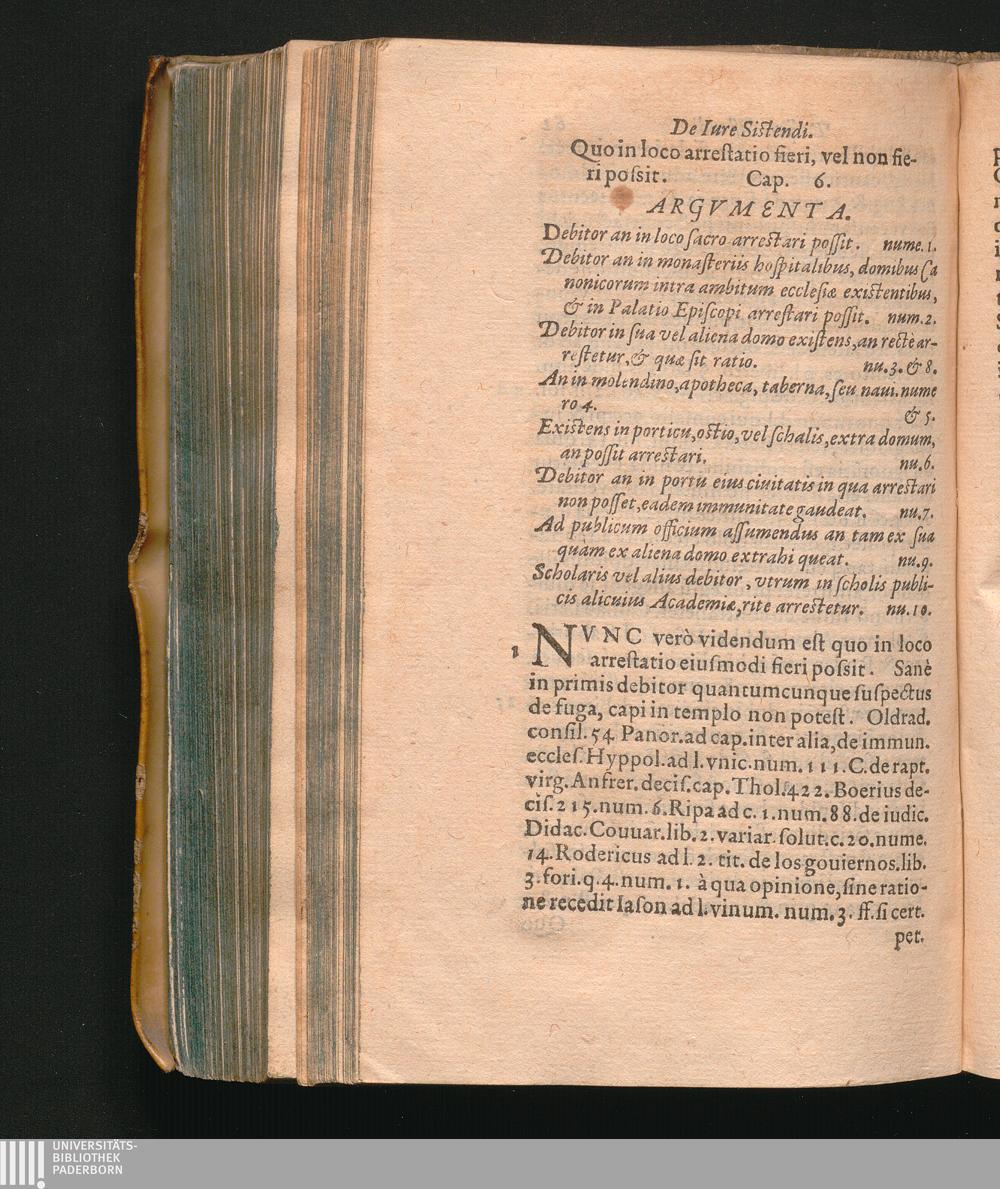 De Iure Sistendi.
Quo in loco arrestatio fieri, vel non fie-
ri possit. Cap. 6.
ARGVMENTA.
Debitor an in loco sacro arrestari possit. nume. 1.
Debitor an in monasteriis hospitalibus, domibus Ca
nonicorum intra ambitum ecclesiæ existentibus,
& in Palatio Episcopi arrestari possit. num. 2.
Debitor in sua vel aliena domo existens, an rectè ar-
restetur, & quæ sit ratio. nu. 3. & 8.
An in molendino, apotheca, taberna, seu naui. nume
ro 4. & 5.
Existens in porticu, ostio, vel schalis, extra domum,
an possit arrestari. nu. 6.
Debitor an in portu eius ciuitatis in qua arrestari
non posset, eadem immunitate gaudeat. nu. 7.
Ad publicum officium assumendus an tam ex sua
quàm ex aliena domo extrahi queat. nu. 9.
Scholaris vel alius debitor, vtrum in scholis publi-
cis alicuius Academiæ, rite arrestetur. nu. 10.
1 NVNC verò videndum est quo in loco
arrestatio eiusmodi fieri possit. Sanè
in primis debitor quantumcunque suspectus
de fuga, capi in templo non potest. Oldrad.
consil. 54 Panor. ad cap. inter alia, de immun.
eccles. Hyppol. ad l. vnic. num. 111. C. de rapt.
virg. Anfrer. decis. cap. Thol. 422. Boerius de-
cis. 215. num. 6. Ripa ad c. 1. num. 88. de iudic.
Didac. Couuar. lib. 2. variar. solut. c. 20. nume.
14. Rodericus ad l. 2. tit. de los gouiernos. lib.
3. fori. q. 4. num. 1. à qua opinione, sine ratio-
ne recedit Iason ad l. vinum. num. 3. ff. si cert.
pet.
UNIVERSITÄTS-
BIBLIOTHEK
PADERBORN